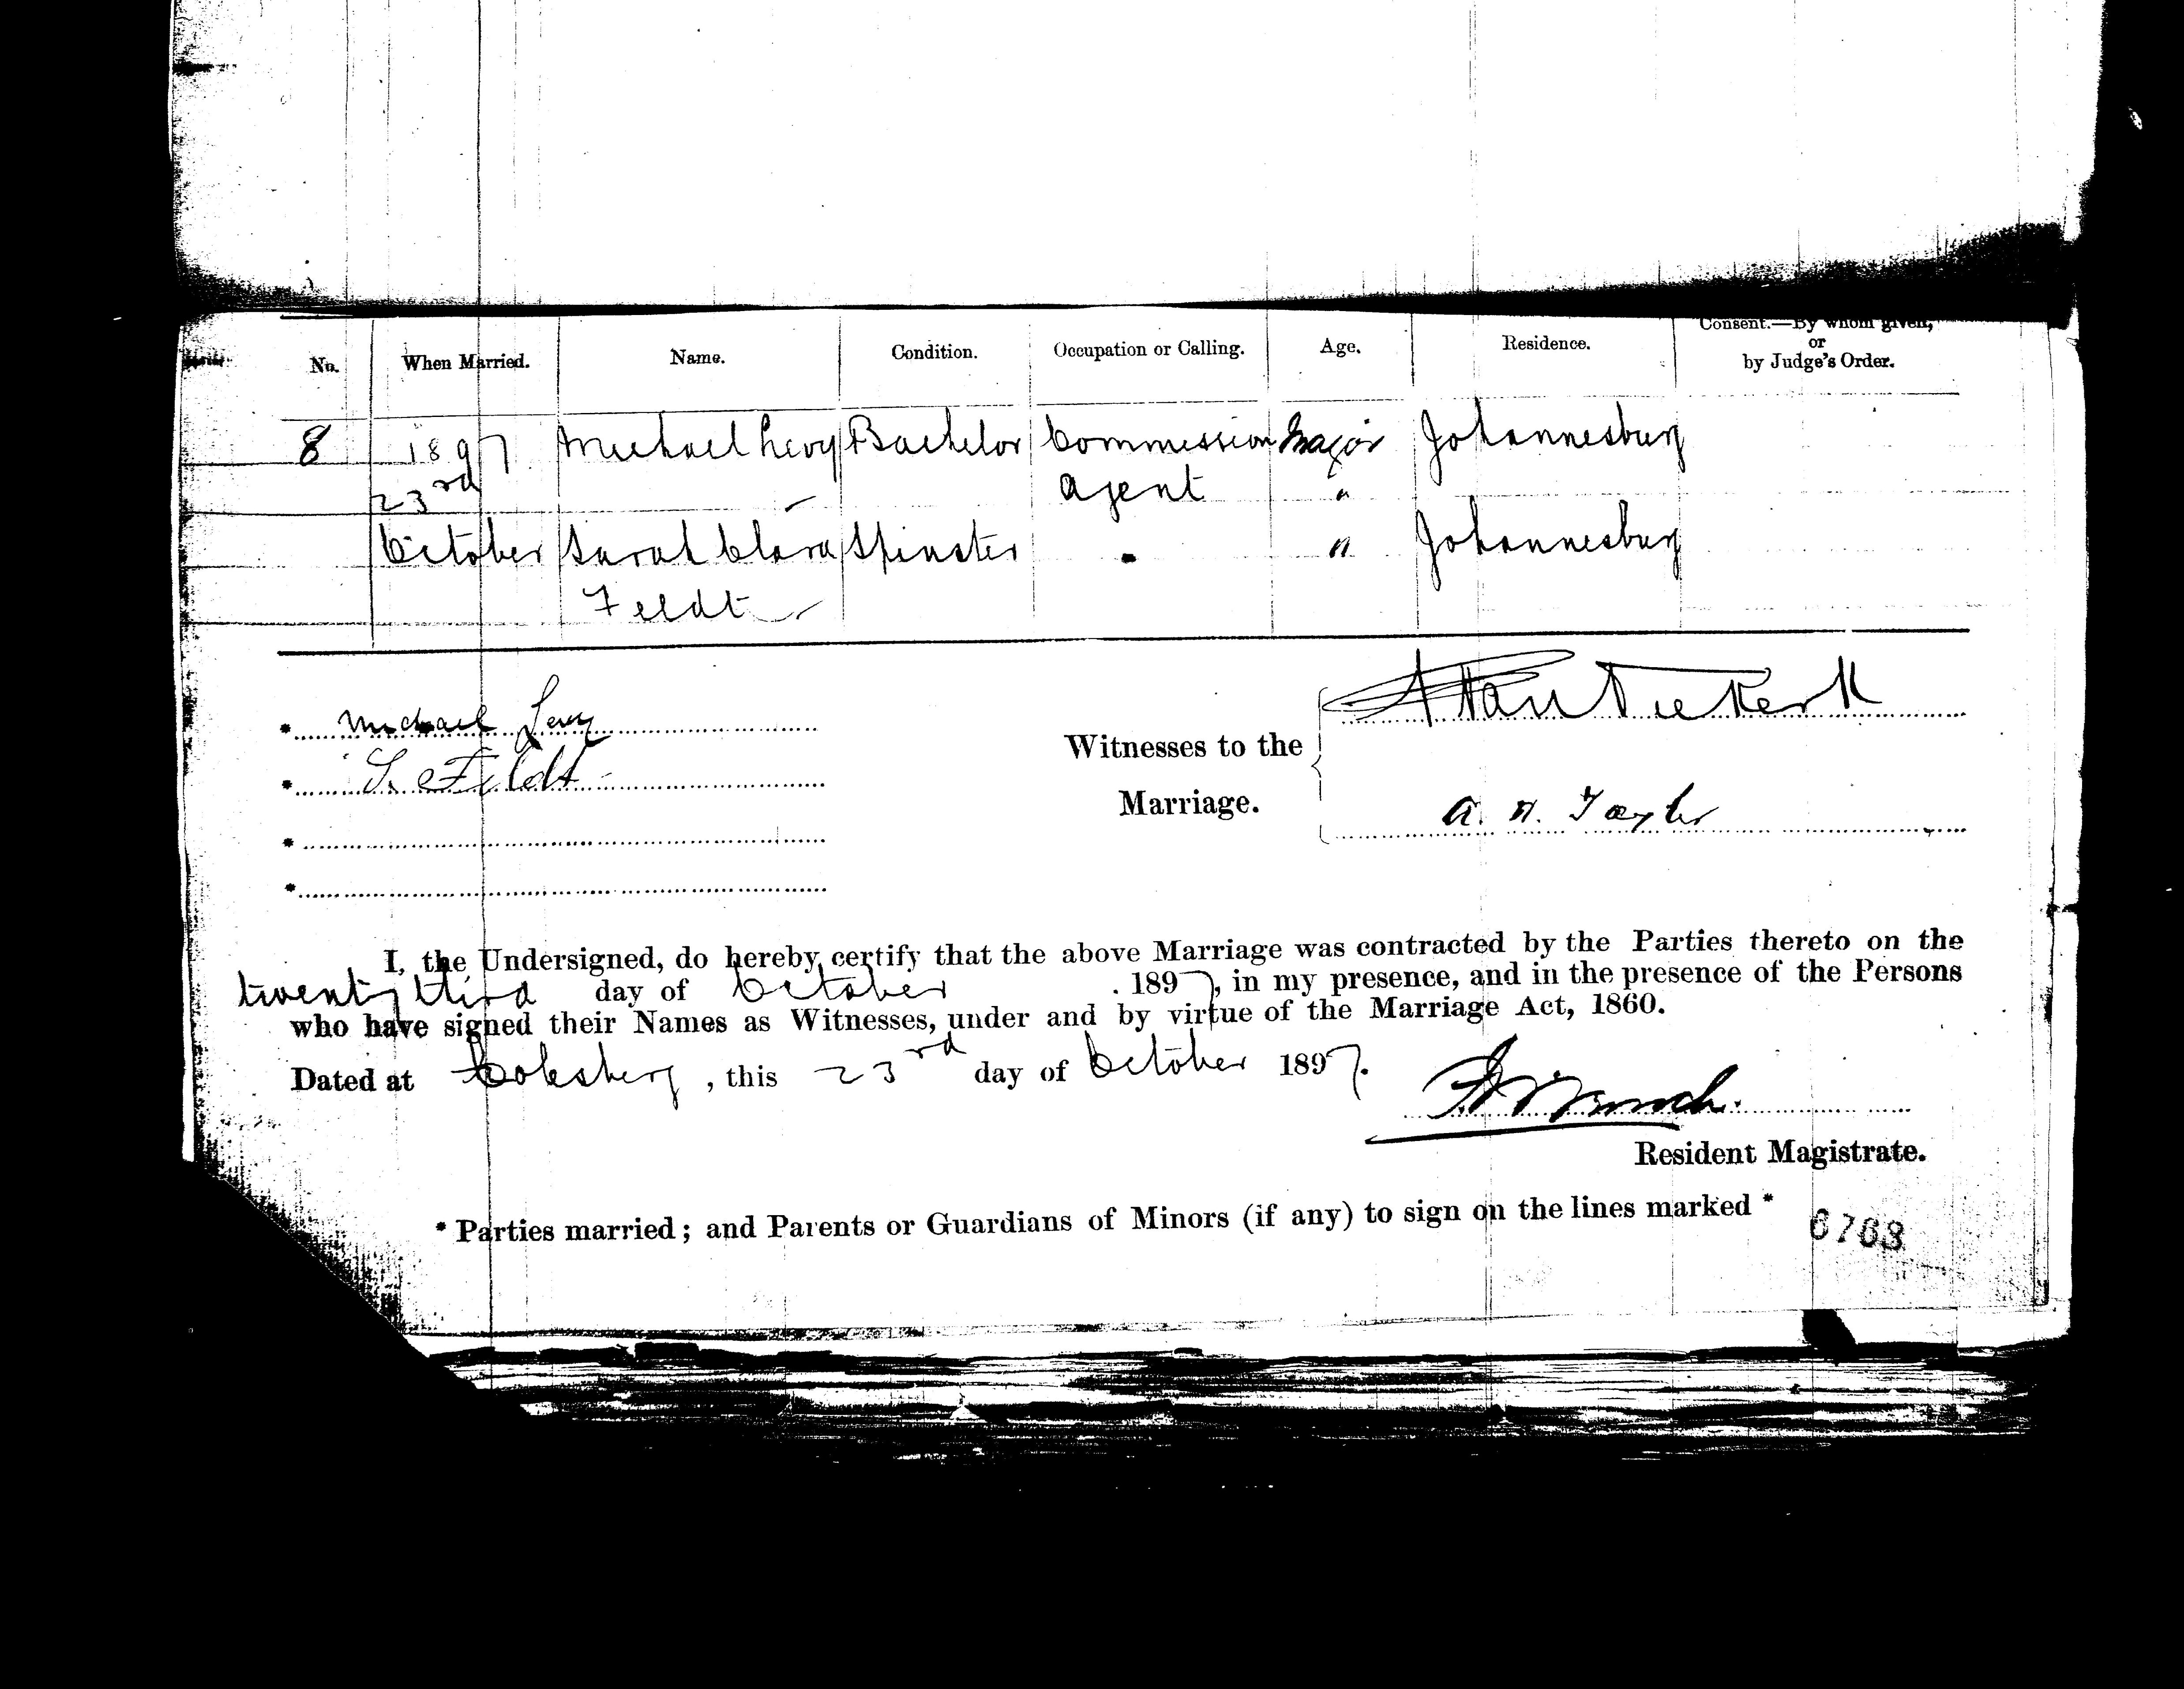 Consent.—By whom given,
No. When Married. Name. Condition. Occupation or Calling. Age. Residence. or
by Judge's Order.
8 1897 Michael Levy Bachelor Commission Major Johannesburg
23rd Agent "
October Sarah Clara Spinster - " Johannesburg
Feldt
* Michael Levy
* S. Feldt
Witnesses to the
Marriage.
van Niekerk
A. H. Tayler
*
*
I, the Undersigned, do hereby certify that the above Marriage was contracted by the Parties thereto on the
twenty third day of October 1897, in my presence, and in the presence of the Persons
who have signed their Names as Witnesses, under and by virtue of the Marriage Act, 1860.
Dated at Colesberg, this 23rd day of October 1897.
Resident Magistrate.
* Parties married; and Parents or Guardians of Minors (if any) to sign on the lines marked *
6763